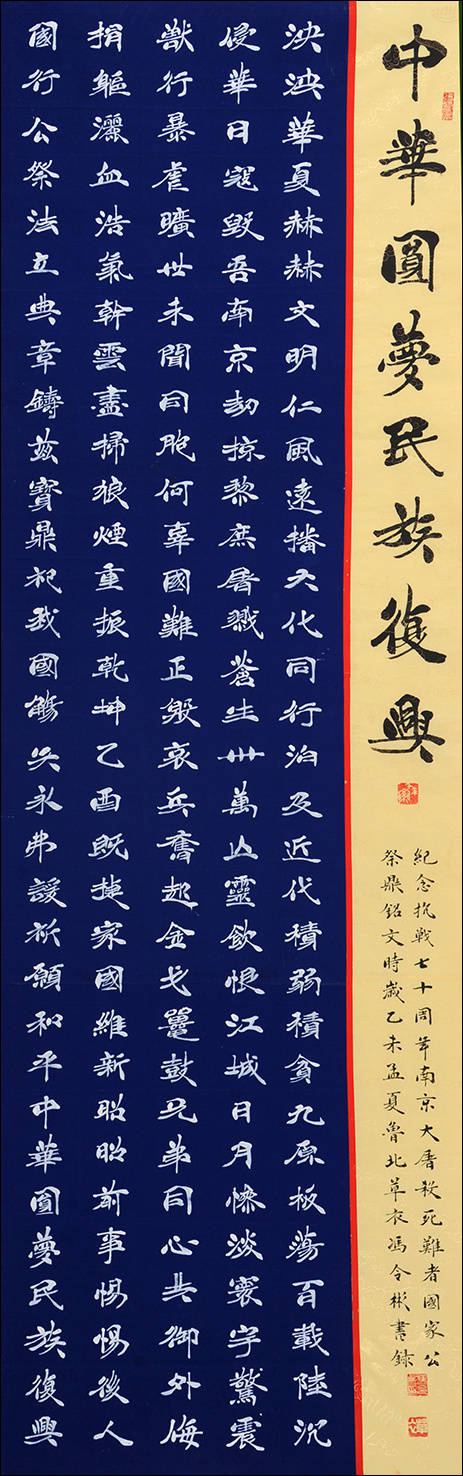 中華圓夢民族復興
紀念抗戰七十周年南京大屠殺死難者國家公
祭鼎銘文時歲乙未孟夏魯北草衣馮令彬書録
泱泱華夏赫赫文明仁風遠播大化同行洎及近代積弱積貧九原板蕩百載陸沉
侵華日寇毀吾南京劫掠黎庶屠戮蒼生卅萬亡靈飲恨江城日月慘淡寰宇驚震
獸行暴虐曠世未聞同胞何辜國難正殷哀兵奮起金戈鼉鼓兄弟同心共御外侮
捐軀灑血浩氣幹雲盡掃狼煙重振乾坤乙酉既捷家國維新昭昭前事惕惕後人
國行公祭法立典章鑄茲寶鼎祀我國殤矢永弗諼祈願和平中華圓夢民族復興